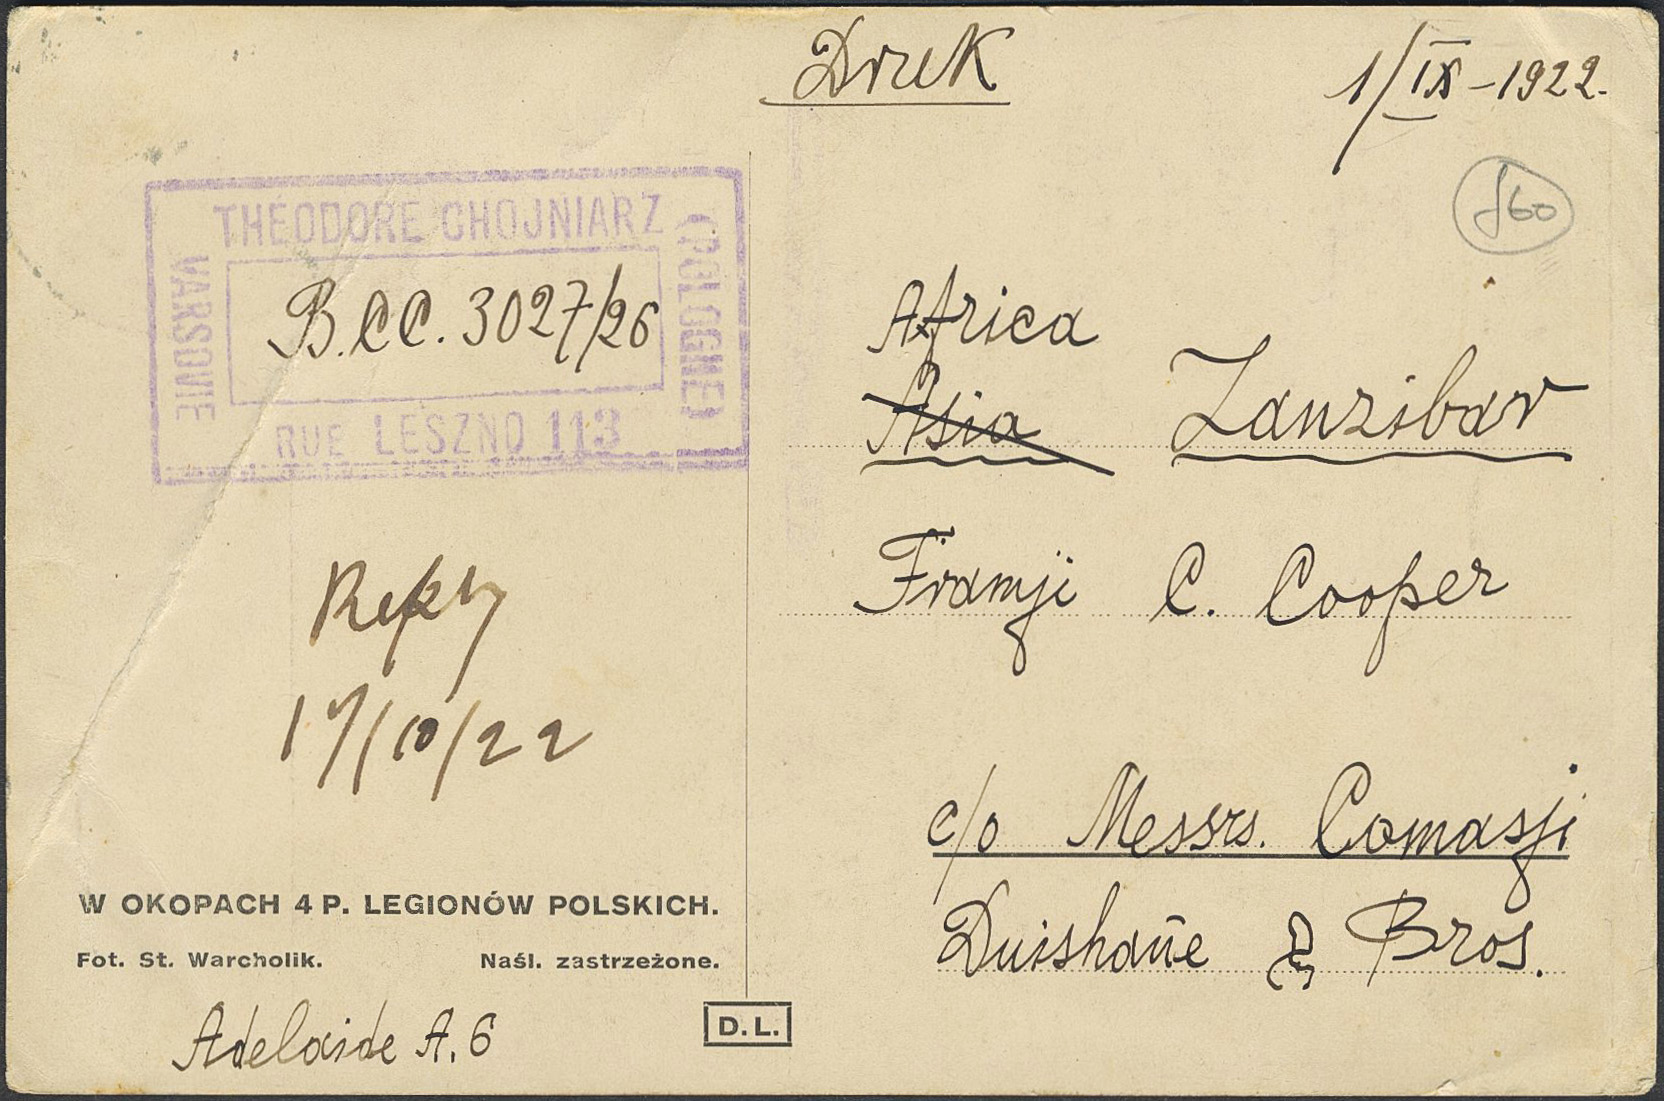 Druk
1/IX-1922.
£60
THEODORE CHOJNIARZ
VARSOVIE
(POLOGNE)
B.CC. 3027/26
RUE LESZNO 113
Africa
Asia Zanzibar
Framji C. Cooper
Reply
17/10/22
c/o Messrs. Comasji
& Bros.
W OKOPACH 4 P. LEGIONÓW POLSKICH.
Fot. St. Warcholik. Naśl. zastrzeżone.
D.L.
Adelaide A.6